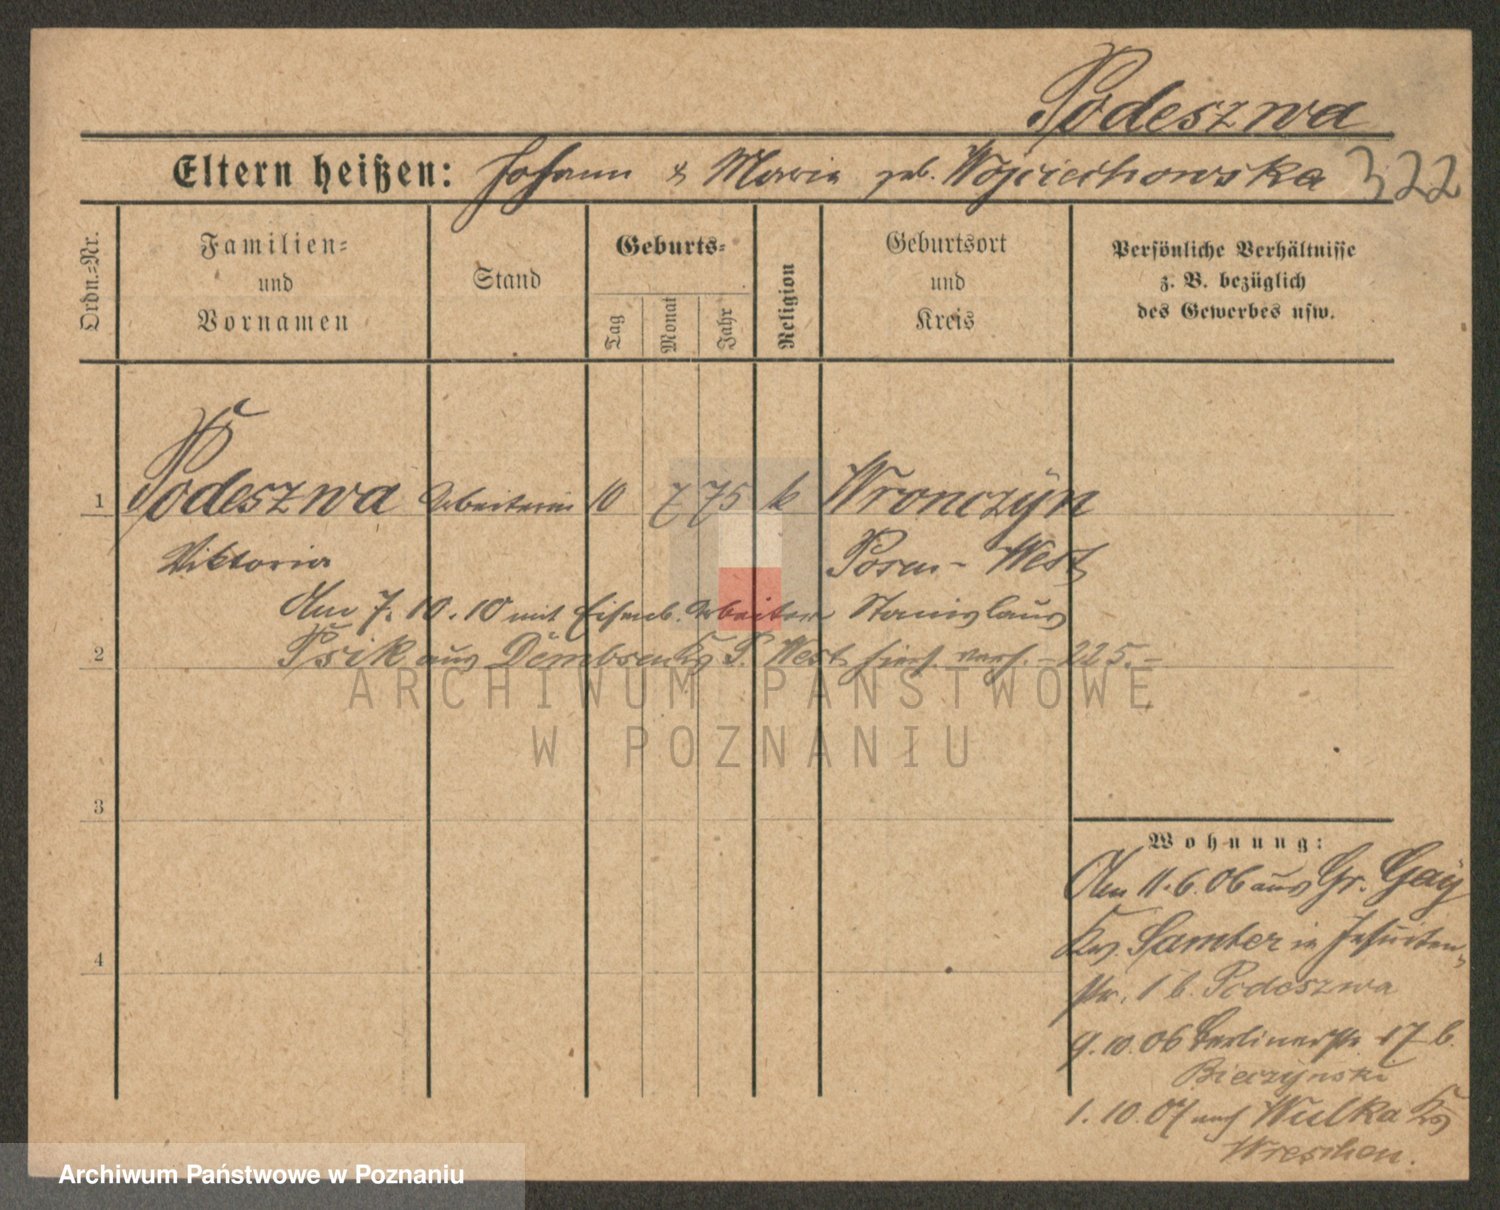 Podeszwa
Eltern heißen: Johann & Maria geb. Wojciechowska 322
Ordn.=Nr.
Familien=
und
Vornamen
Stand
Geburts=
Tag
Monat
Jahr
Religion
Geburtsort
und
Kreis
Persönliche Verhältnisse
z. B. bezüglich
des Gewerbes usw.
1 Podeszwa Arbeiterin 10 7 75 k Wronczÿn
Viktoria Posen-West
Am 7.10.10 mit Eisenb. Arbeiter Stanislaus
2 Psik aus Dembsen Krs P. West hier verh. – 225.–
ARCHIWUM PAŃSTWOWE
W POZNANIU
3
4
Wohnung:
Am 11.6.06 aus Gr. Gaÿ
Krs. Samter in Jesuiten-
str. 1 b. Podeszwa
9.10.06 Berlinerstr 17 b.
Bieczÿnski
1.10.07 nach Wulka Krs
Wreschen.
Archiwum Państwowe w Poznaniu